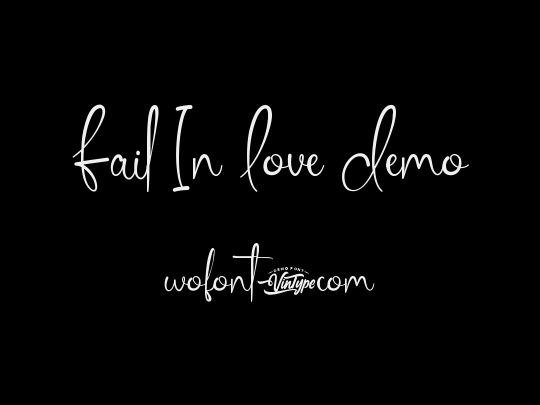 Fail In love demo
wofont
DEMO FONT
Vintype
com